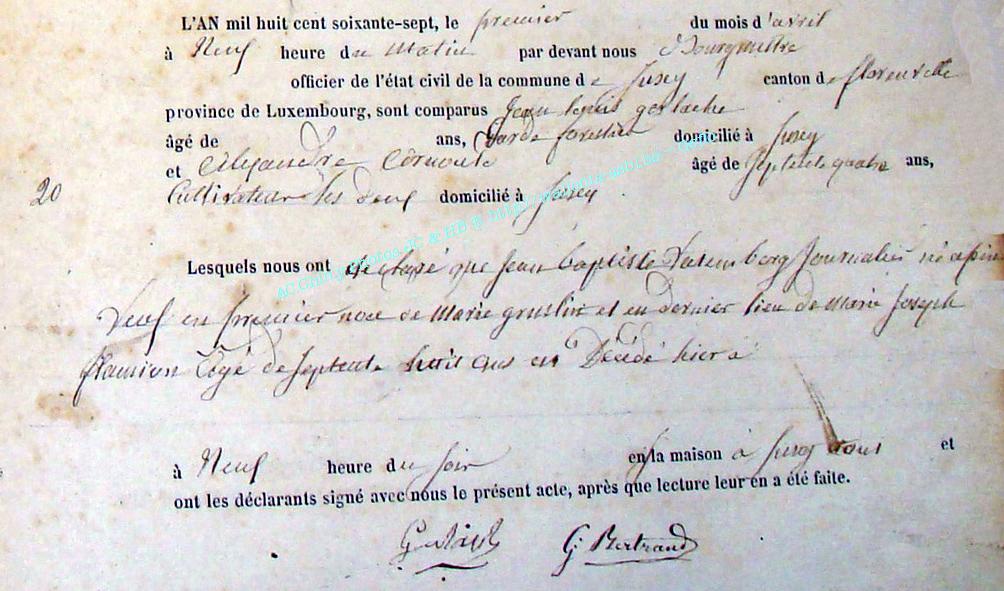 L'AN mil huit cent soixante-sept, le premier du mois d'avril
à Neuf heure du Matin par devant nous Bourgmestre
officier de l'état civil de la commune de Jusey canton de florenville
province de Luxembourg, sont comparus Jean louis gerlache
âgé de ans, Garde forestier domicilié à Jusey
et Alexandre âgé de Septente quatre ans,
20 Cultivateur les deux domicilié à Jusey
Lesquels nous ont declaré que Jean baptiste Journalier né a
Veuf en premier noce de Marie et en dernier lieu de Marie Joseph
flamion agé de septente huit ans est Décédé hier a
à Neuf heure du soir en sa maison à Jusey et
ont les déclarants signé avec nous le présent acte, après que lecture leur en a été faite.
G. Bertrand